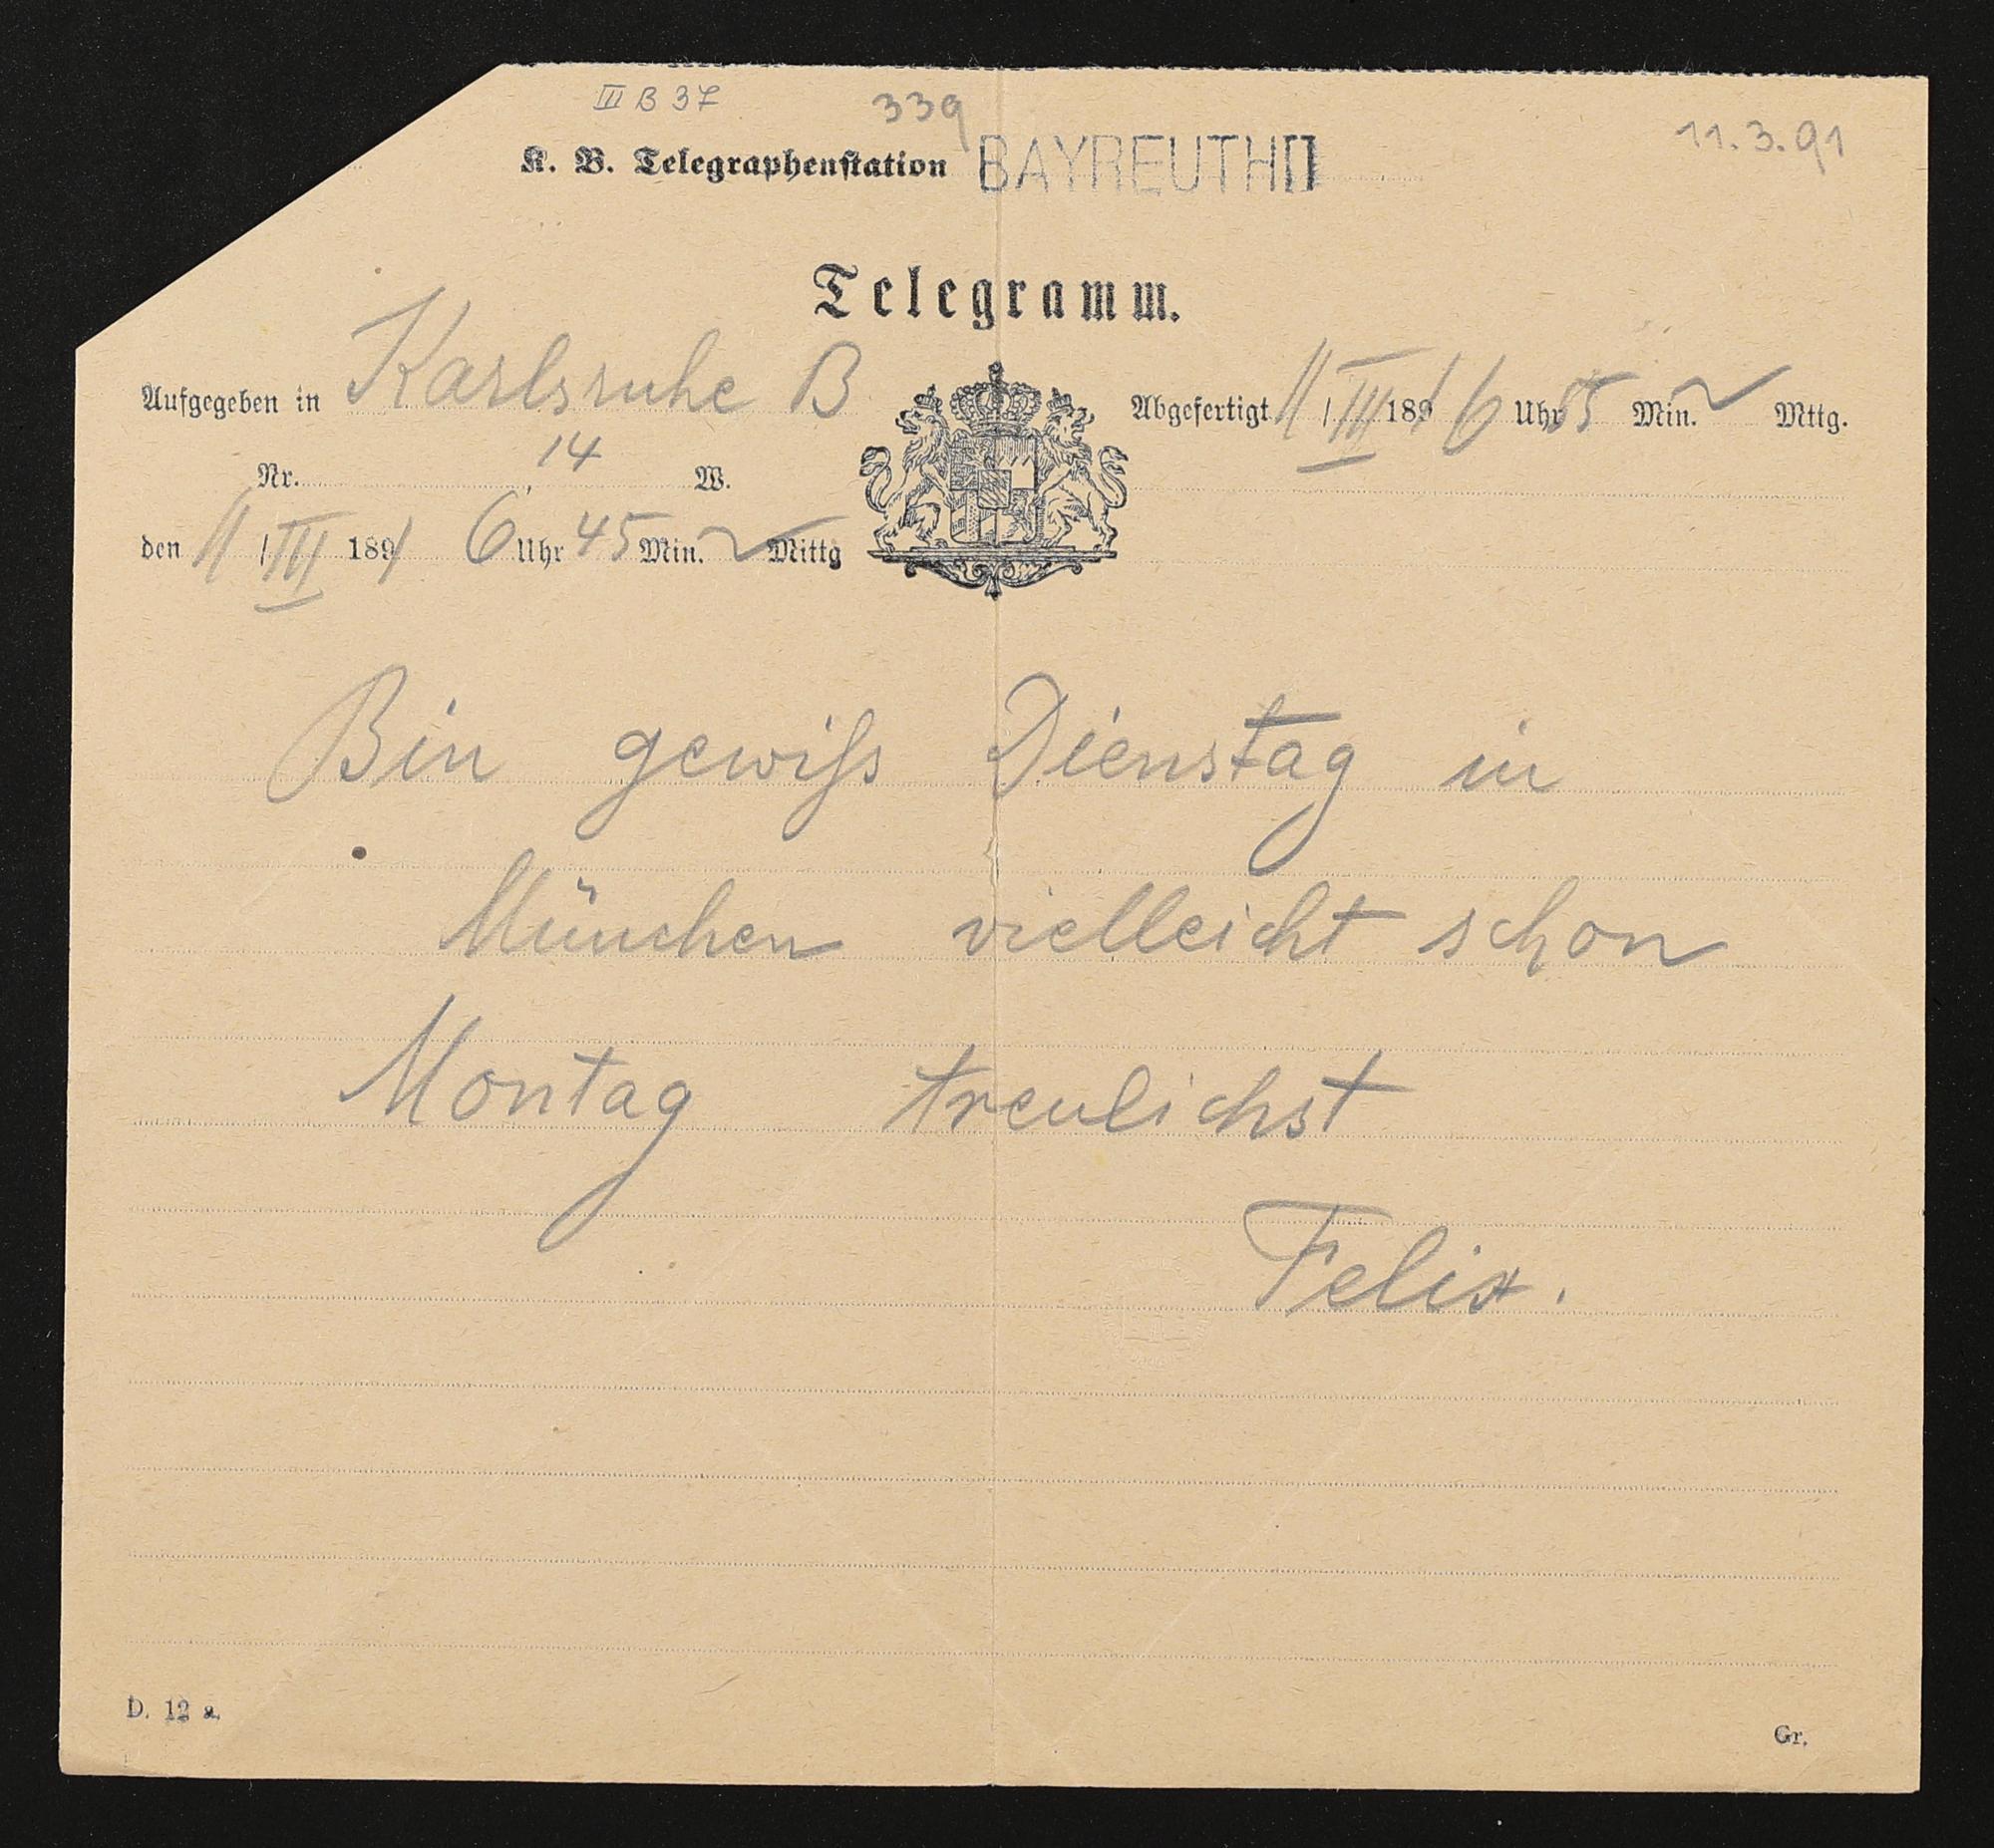 III B 37
339
11.3.91
K. B. Telegraphenstation BAYREUTH II
Telegramm.
Aufgegeben in Karlsruhe B
Abgefertigt 11/III 1891 6 Uhr 55 Min. Mttg.
Nr. 14 W.
den 11/III 1891 6 Uhr 45 Min. Mittg
Bin gewiſs Dienstag in
München vielleicht schon
Montag treulichst
Felix.
D. 12 a.
Gr.